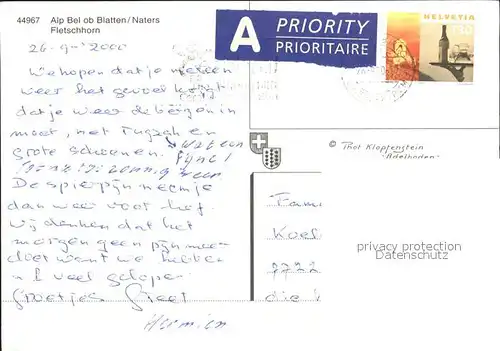 44967 Alp Bel ob Blatten/Naters
Fletschhorn
A PRIORITY
PRIORITAIRE
HELVETIA
130
26-9-2000
We hopen dat je meteen
weer het gevoel krijgt
dat je weer de bergen in
moet, met rugzak en
grote schoenen.
fijne!
zonnig weer
De spierpijn neem je
dan weer voor lief.
Wij denken dat het
morgen geen pijn meer
doet want we hebben
veel gelopen
Groetjes Greet
Hermien
© Thot Klopfenstein
"Adelboden"
Fam
Koel
7722
die
privacy protection
Datenschutz